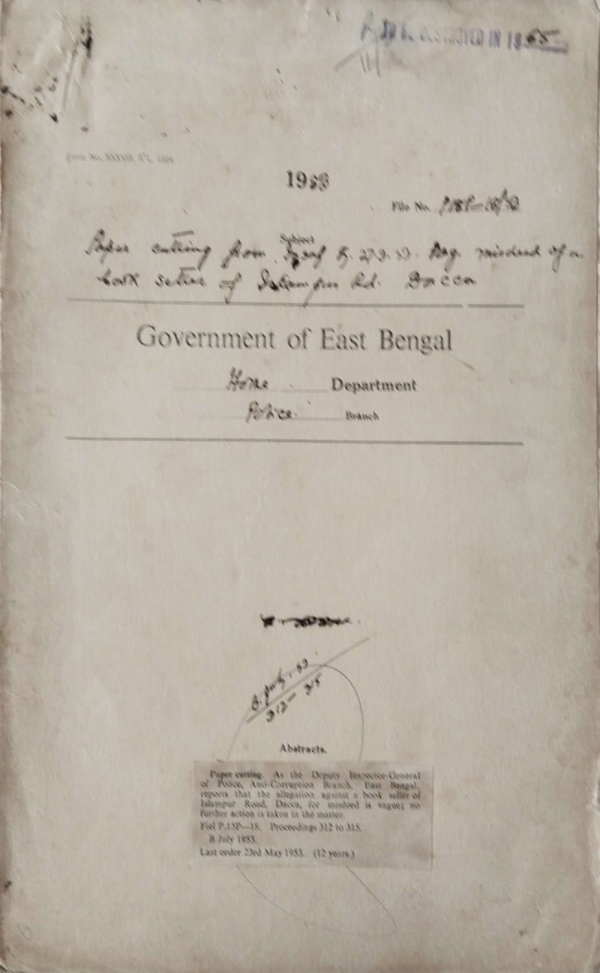 TO BE DESTROYED IN 1965
Form No. XXXVIII
1953
File No. P15P-18/53
Subject
Paper cutting from 27.3.53. Reg. misdeed of a
book seller of Islampur Rd. Dacca
Government of East Bengal
Home Department
Police Branch
B. July. 53
312 - 315
Abstracts.
Paper cutting. As the Deputy Inspector-General
of Police, Anti-Corruption Branch, East Bengal,
reports that the allegation against a book seller of
Islampur Road, Dacca, for misdeed is vague; no
further action is taken in the matter.
Fiel P.15P—18. Proceedings 312 to 315.
B July 1953.
Last order 23rd May 1953. (12 years.)